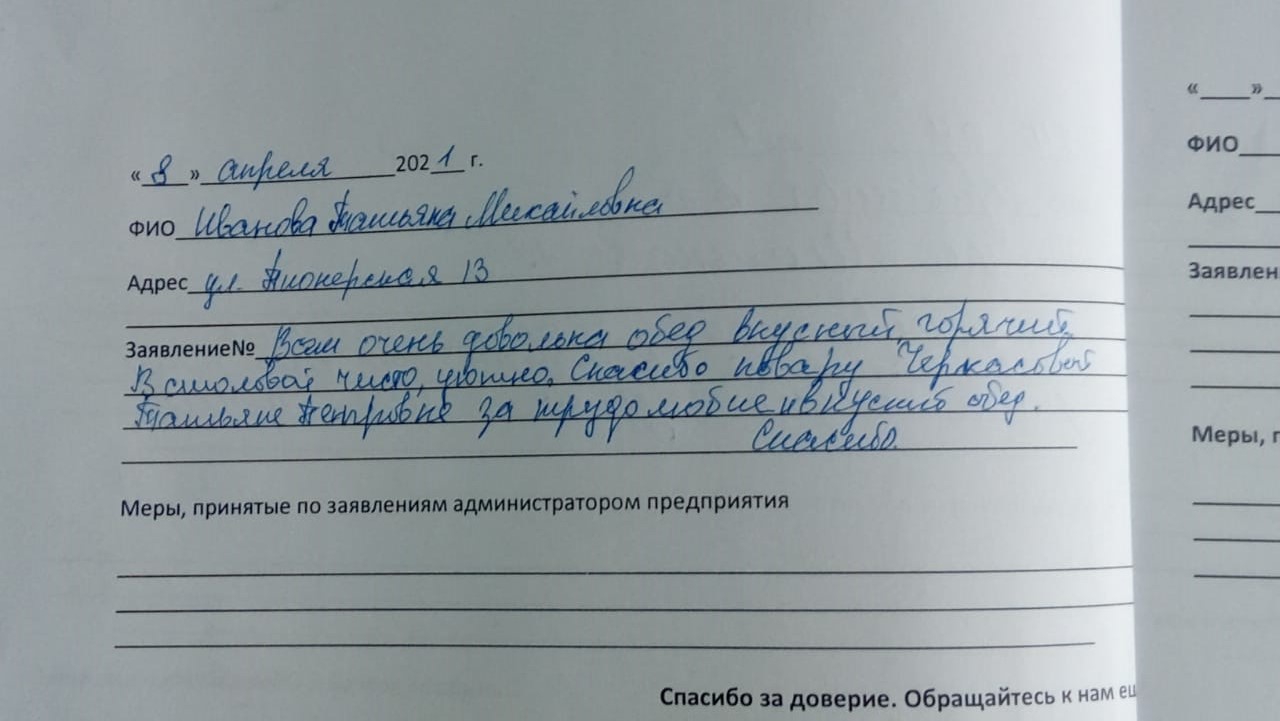 «8» апреля 2021 г.
ФИО Иванова Татьяна Михайловна
Адрес ул. Пионерская 13
Заявление№ Всем очень довольна обед вкусный, горячий
В столовой чисто, уютно. Спасибо повару Черкасовой
Татьяне Петровне за трудолюбие и вкусный обед.
Спасибо.
Меры, принятые по заявлениям администратором предприятия
Спасибо за доверие. Обращайтесь к нам ещ
« »
ФИО
Адрес
Заявлен
Меры, п